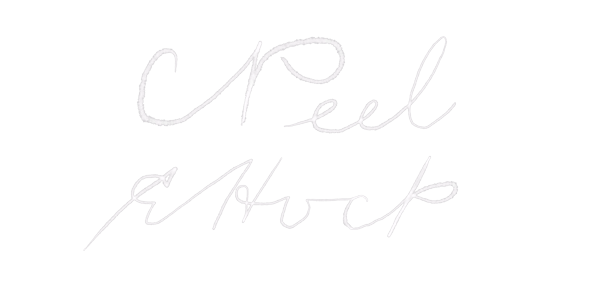 C Peel
E Hock